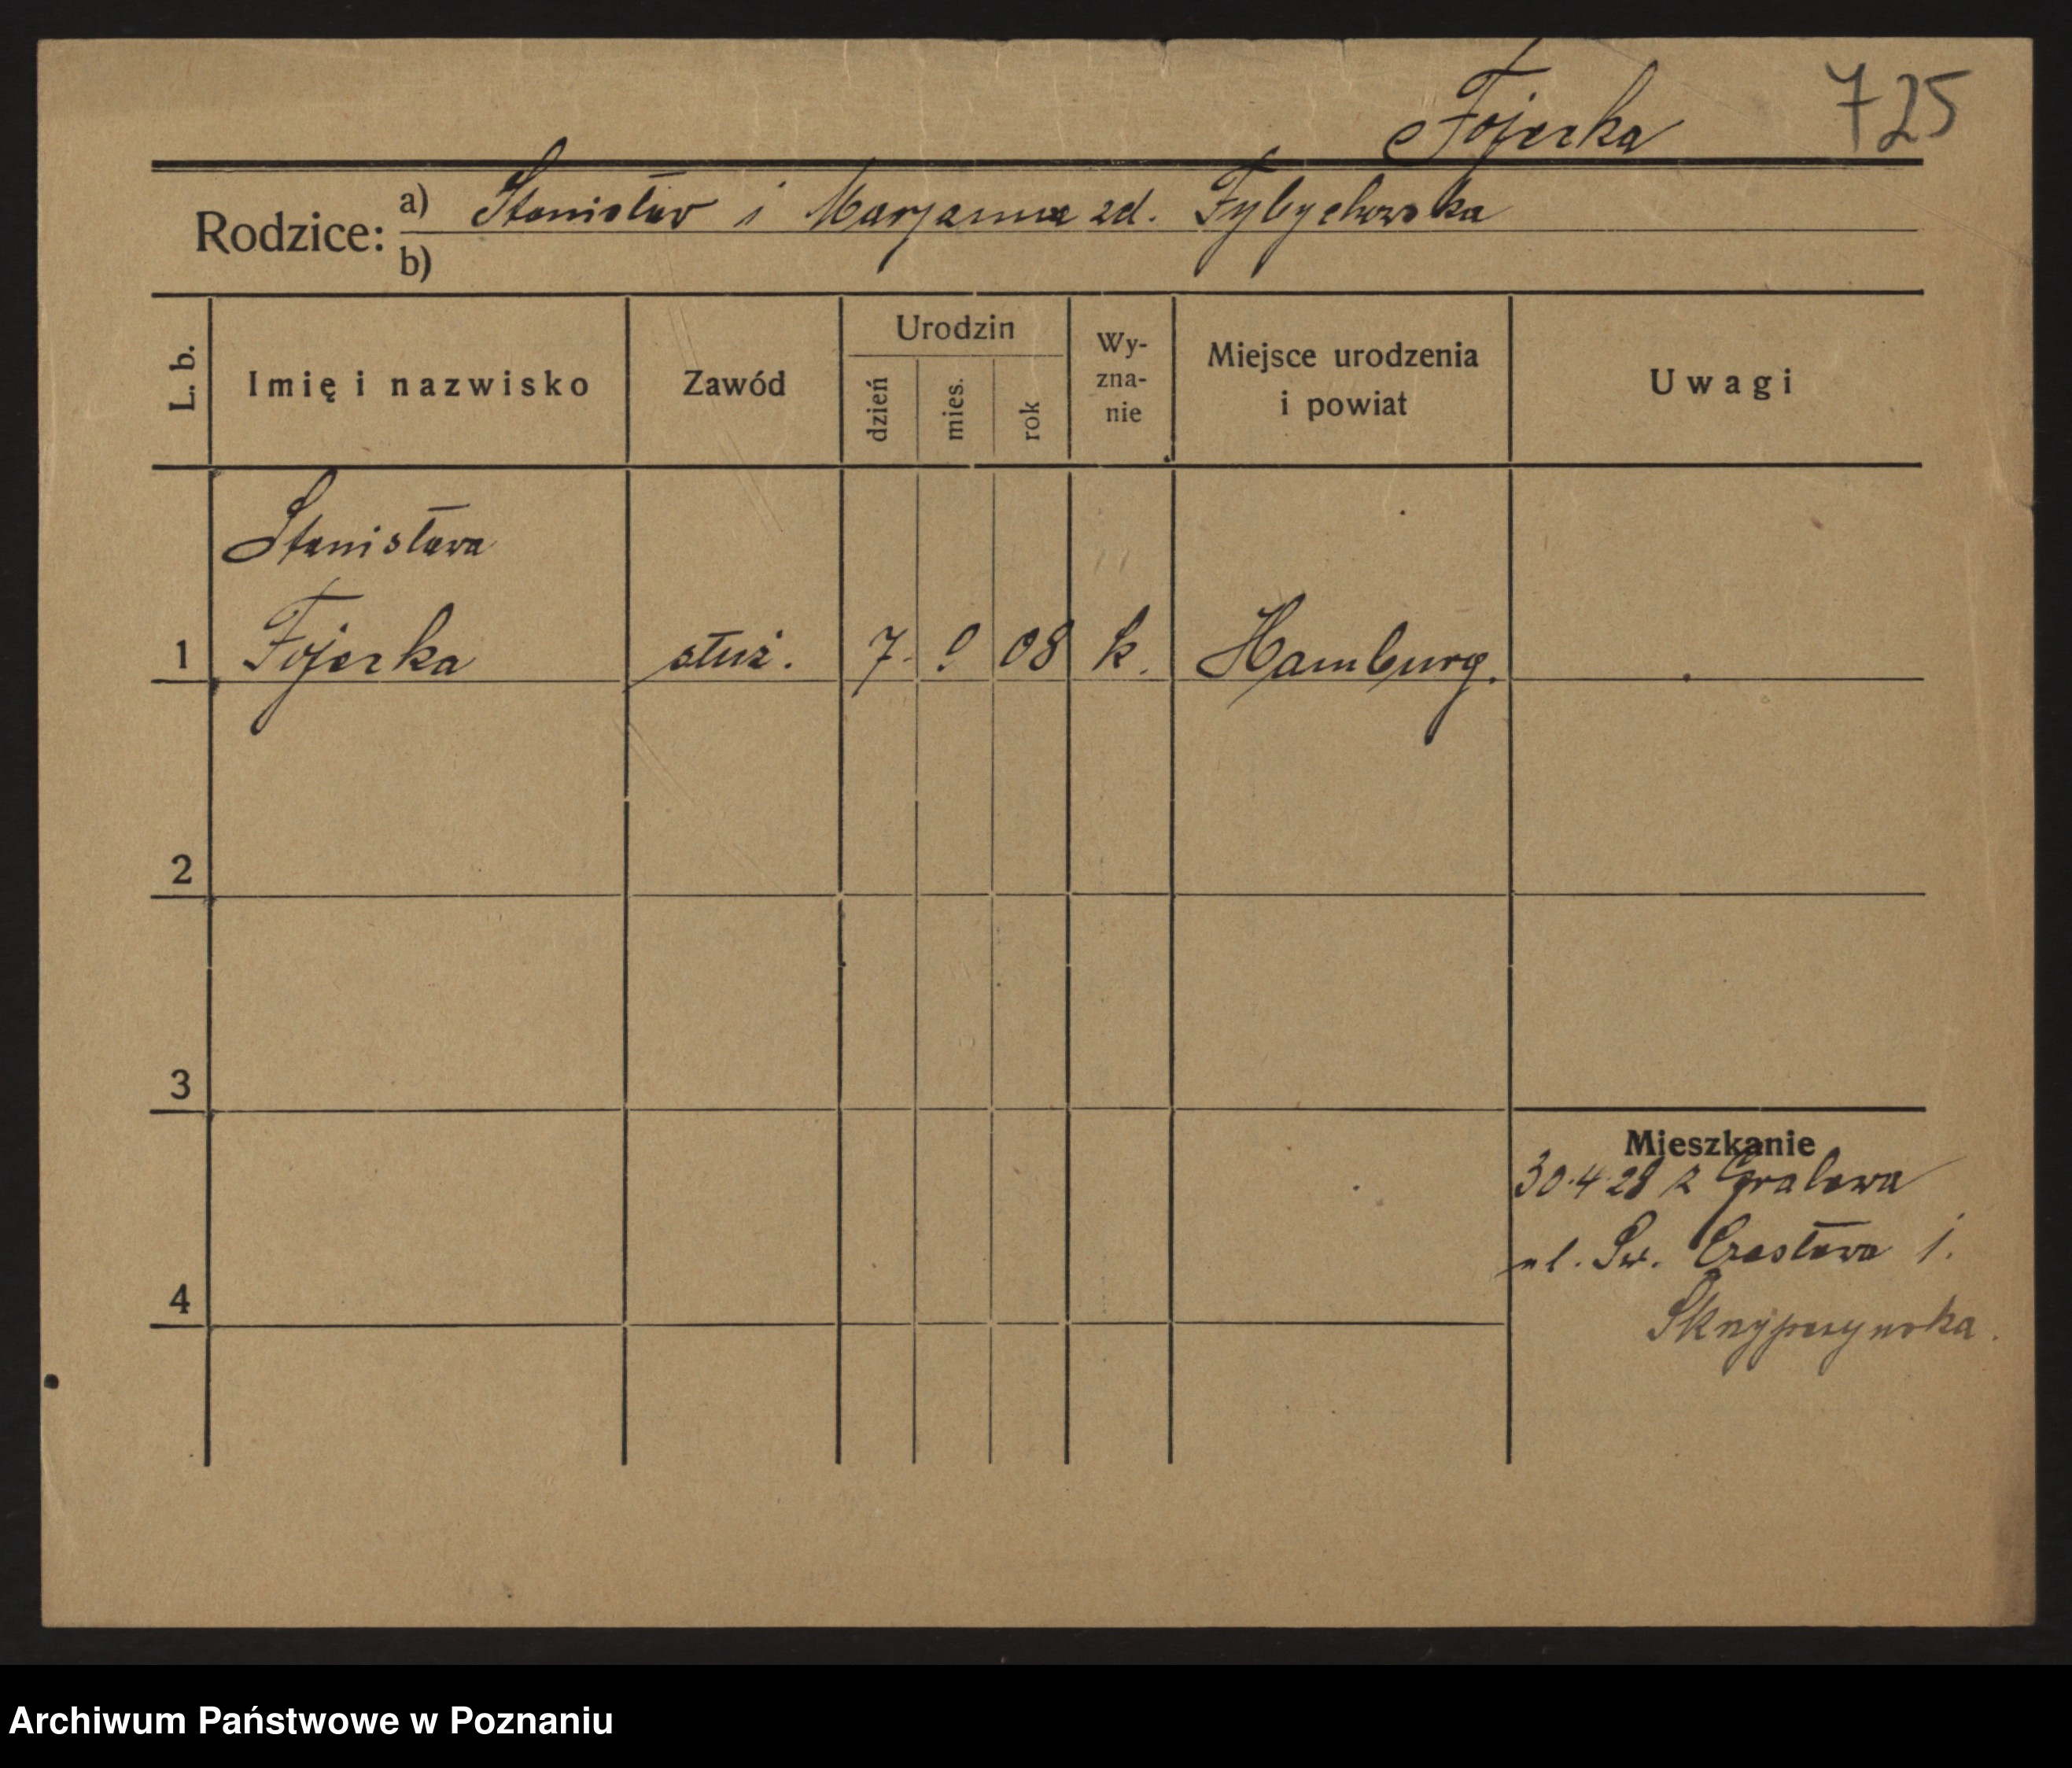 Fojerka 725
Rodzice: a) Stanisław i Marjanna zd. Fybychowska
b)
L. b. Imię i nazwisko Zawód Urodzin dzień mies. rok Wy-zna-nie Miejsce urodzenia i powiat Uwagi
Stanisława
1 Fojerka służ. 7. 08 k. Hamburg.
2
3
Mieszkanie
30.4.28 z Gralewa
ul. Św. Czesława 1.
4
Archiwum Państwowe w Poznaniu